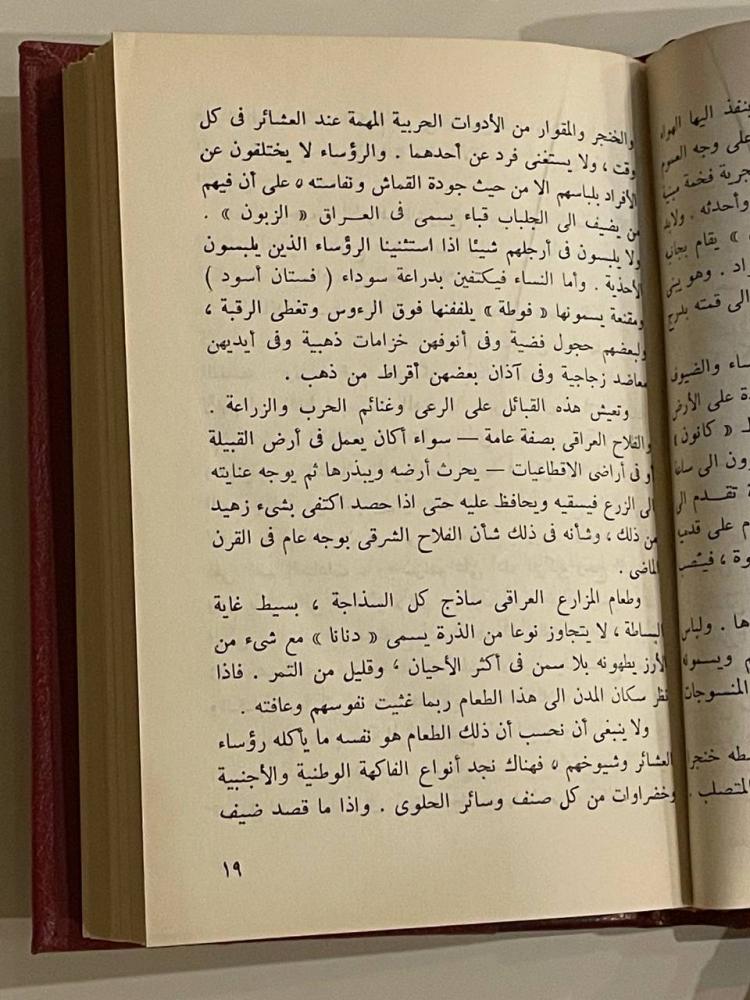 والخنجر والمقوار من الأدوات الحربية المهمة عند العشائر فى كل
وقت ، ولا يستغنى فرد عن أحدهما . والرؤساء لا يختلقون عن
الأفراد بلباسهم الا من حيث جودة القماش ونفاسته ٥ على أن فيهم
من يضيف الى الجلباب قباء يسمى فى العـراق « الزبون » .
ولا يلبسون فى أرجلهم شيئا اذا استثنينا الرؤساء الذين يلبسون
الأحذية . وأما النساء فيكتفين بدراعة سوداء ( فستان أسود )
ومقنعة يسمونها « فوطة » يلففنها فوق الرءوس وتغطى الرقبة ،
ولبعضهم حجول فضية وفى أنوفهن خزامات ذهبية وفى أيديهن
معاضد زجاجية وفى آذان بعضهن أقراط من ذهب .
وتعيش هذه القبائل على الرعى وغنائم الحرب والزراعة .
والفلاح العراقى بصفة عامة — سواء أكان يعمل فى أرض القبيلة
أو فى أراضى الاقطاعيات — يحرث أرضه ويبذرها ثم يوجه عنايته
الى الزرع فيسقيه ويحافظ عليه حتى اذا حصد اكتفى بشىء زهيد
من ذلك ، وشأنه فى ذلك شأن الفلاح الشرقى بوجه عام فى القرن
الماضى .
وطعام المزارع العراقى ساذج كل السذاجة ، بسيط غاية
البساطة ، لا يتجاوز نوعا من الذرة يسمى « دنانا » مع شىء من
الأرز يطهونه بلا سمن فى أكثر الأحيان ، وقليل من التمر . فاذا
نظر سكان المدن الى هذا الطعام ربما غثيت نفوسهم وعافته .
ولا ينبغى أن نحسب أن ذلك الطعام هو نفسه ما يأكله رؤساء
العشائر وشيوخهم ٥ فهناك نجد أنواع الفاكهة الوطنية والأجنبية
وخضراوات من كل صنف وسائر الحلوى . واذا ما قصد ضيف
١٩
ينفذ اليها الهواء
على وجه العموم
فخمة
وأحدثه . ولابد
» يقام بجانب
راد . وهو
الى قمته بدرج
ساء والضيوف
على الأرض
« كانون »
رون الى
تقـدم الى
على
وة ،
ها . ولباس
ويسمونه
المنسوجات
خنجرا
المتصلب .